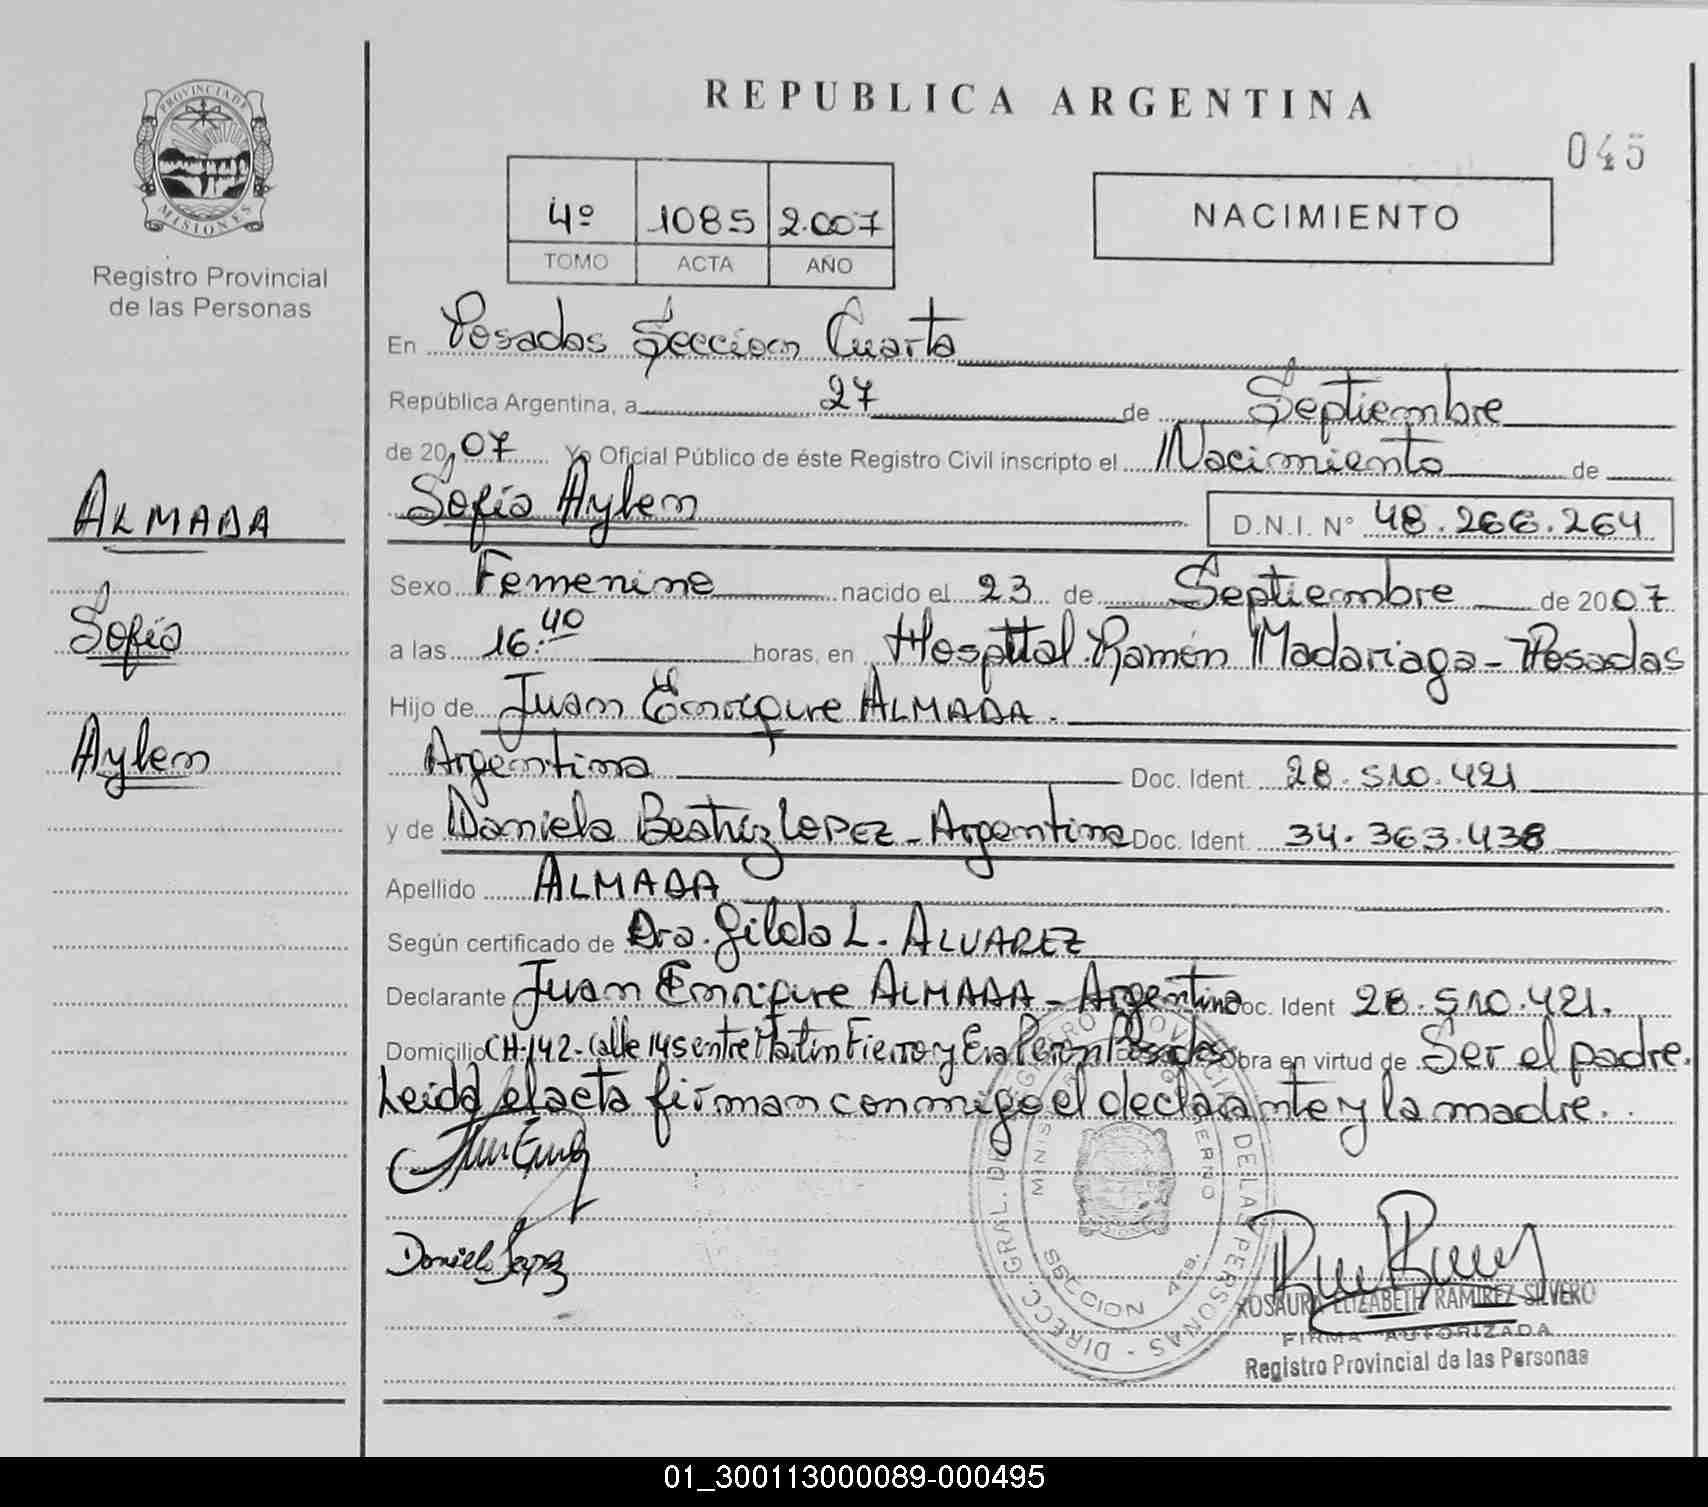 REPUBLICA ARGENTINA
045
PROVINCIA DE
MISIONES
Registro Provincial
de las Personas
4º 1085 2.007
TOMO ACTA AÑO
NACIMIENTO
En Posadas Seccion Cuarta
República Argentina, a 27 de Septiembre
de 2007 Yo Oficial Público de éste Registro Civil inscripto el Nacimiento de
ALMADA
Sofía Aylen D.N.I. Nº 48.266.264
Sexo Femenino nacido el 23 de Septiembre de 2007
Sofía
a las 16:40 horas, en Hospital Ramón Madariaga - Posadas
Hijo de Juan Enrique ALMADA.
Aylen
Argentina Doc. Ident. 28.510.421
y de Daniela Beatriz LOPEZ - Argentina Doc. Ident. 34.363.438
Apellido ALMADA
Según certificado de Dra. Gilda L. ALVAREZ
Declarante Juan Enrique ALMADA - Argentino Doc. Ident 28.510.421.
Domicilio CH-142-Calle 145 entre Martin Fierro y Eva Perón Posadas Obra en virtud de Ser el padre.
Leida el acta firman conmigo el declarante y la madre.
Daniela Lopez
DIRECC. GRAL. DEL REGISTRO PROVINCIAL DE LAS PERSONAS
SECCION 4ta.
ROSAURA ELIZABETH RAMIREZ SILVERO
FIRMA AUTORIZADA
Registro Provincial de las Personas
01_300113000089-000495